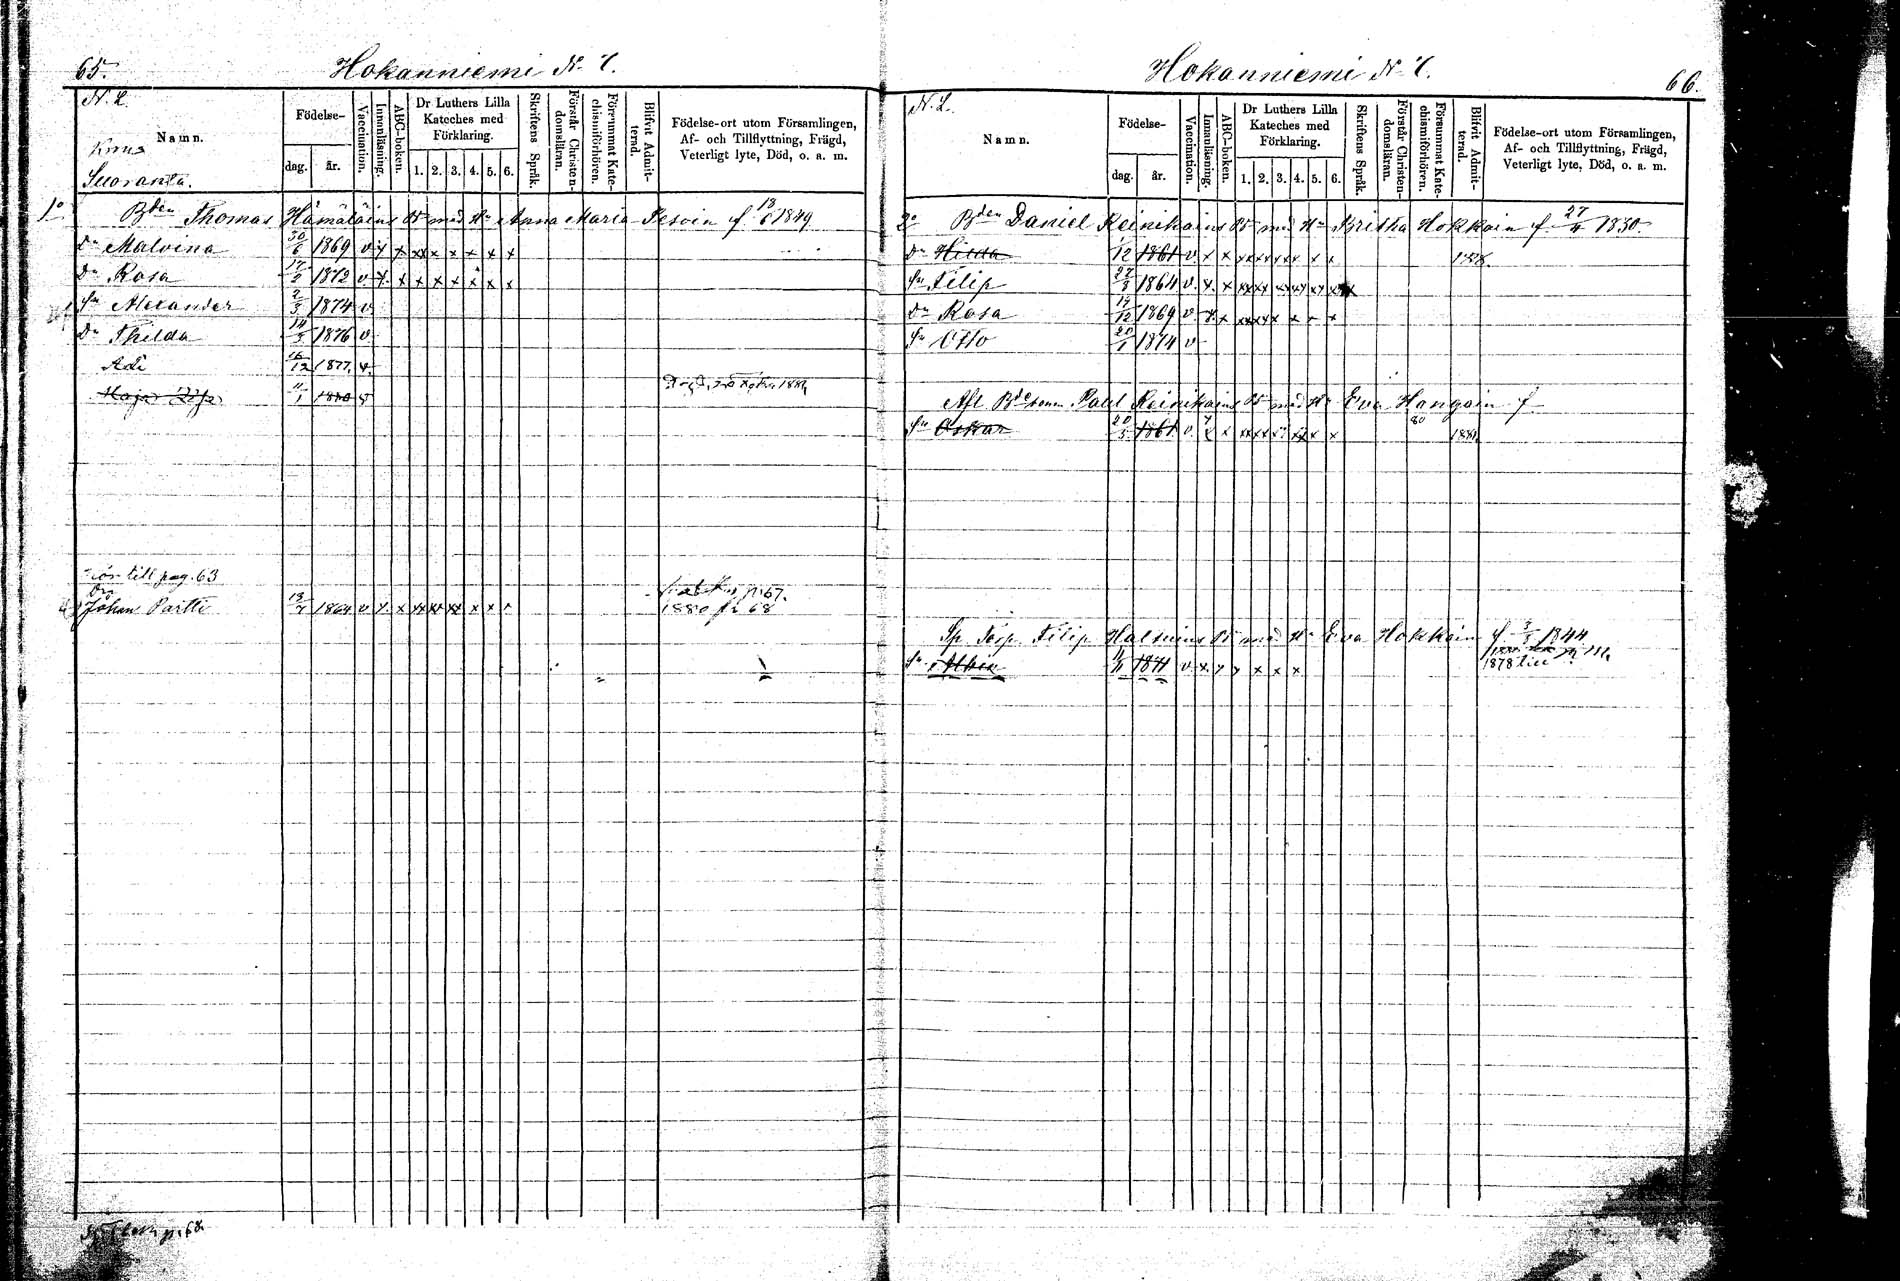 65.
Hokanniemi N. 7.
N. L.
Namn.
Födelse-
dag.
år.
Vaccination.
Innanläsning.
ABC-boken.
Dr Luthers Lilla
Kateches med
Förklaring.
1. 2. 3. 4. 5. 6.
Skriftens Språk.
Förstår Christen-
domsläran.
Försummat Kate-
chismiförhören.
Blifvit Admit-
terad.
Födelse-ort utom Församlingen,
Af- och Tillflyttning, Frägd,
Veterligt lyte, Död, o. a. m.
Suoranta.
1o Bden Thomas Hämäläins Br med Hu Anna Maria Pesoin f 18/6 1849
Dr Malvina 30/6 1869 v x x xx x x x x x
Dr Rosa 17/2 1872 v x x x x x x x x
Sn Alexander 2/3 1874 v
Dr Thilda 14/3 1876 v
Adi 16/12 1877 v
Maja 11/1 1880 v
till pag. 63
Johan Partti 13/7 1864 v x x xx xx xx x x x
p. 67.
1880 68
66.
Hokanniemi N. 7.
N. L.
Namn.
Födelse-
dag.
år.
Vaccination.
Innanläsning.
ABC-boken.
Dr Luthers Lilla
Kateches med
Förklaring.
1. 2. 3. 4. 5. 6.
Skriftens Språk.
Förstår Christen-
domsläran.
Försummat Kate-
chismiförhören.
Blifvit Admit-
terad.
Födelse-ort utom Församlingen,
Af- och Tillflyttning, Frägd,
Veterligt lyte, Död, o. a. m.
2o Bden Daniel Reinikains Br med Hu Britha Hokkain f 27/4 1830
Dr Hilda 12 1861 v x x xx xx xx xx x x
Sn Filip 27/3 1864 v x x xx xx xx xx xx xx
Dr Rosa 17/12 1869 v x x xx xx x x x x
Sn Otto 20/1 1874 v
Afl Bdesonen Paul Reinikains Br med Hu Eva Hangain f
Sn Oskar 20/3 1861 v x x xx xx xx xx x x 80 1881
Sp Torp. Filip Halruins Br med Hu Eva Hokkain f 3/3 1844
Sn Albin 11/11 1871 v x x x x x x 1878 till
p. 68